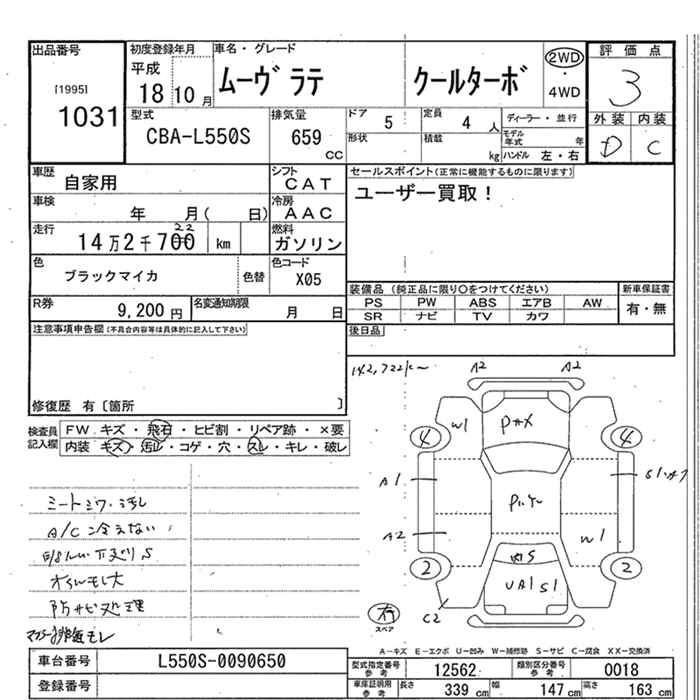 出品番号 初度登録年月 車名・グレード 評価点
[1995] 平成 ムーヴ ラテ クールターボ 2WD ・ 4WD 3
1031 18 10月
型式 排気量 ドア 5 定員 4人 ディーラー・並行 外装 内装
CBA-L550S 659 CC 形状 積載 kg モデル年式 年 D C
ハンドル 左・右
車歴 自家用 シフト CAT セールスポイント(正常に機能するものに限ります)
車検 年 月( 日) 冷房 AAC ユーザー買取!
走行 14万2千700 22 km 燃料 ガソリン
色 ブラックマイカ 色替 色コード X05
装備品 (純正品に限り○をつけてください) 新車保証書
R券 9,200円 名変通知期限 月 日 PS PW ABS エアB AW 有・無
SR ナビ TV カワ
注意事項申告欄(不具合内容等は具体的に記入して下さい) 後日品
修復歴 有〔箇所 〕
142,722k~
A2 A2
検査員記入欄 FW キズ・飛石・ヒビ割・リペア跡・×要
内装 キズ・汚レ・コゲ・穴・スレ・キレ・破レ
W1 P
4 4
A1
A2 W1
2 2
UA1S1
C2
シートシワ・汚レ
A/C冷えない
下廻りS
オイルモレ大
防サビ処理
マフラー排気モレ
有 スペア
A-キズ E-エクボ U-凹み W-補修跡 S-サビ C-腐食 XX-交換済
車台番号 L550S-0090650 型式指定番号参考 12562 類別区分番号参考 0018
登録番号 車庫証明用参考 長さ 339cm 幅 147cm 高さ 163cm